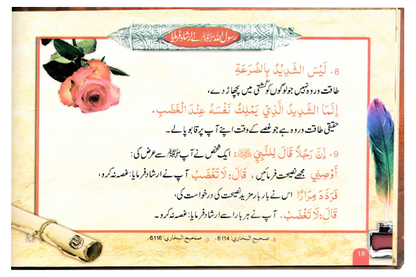 رسول اللہ ﷺ نے ارشاد فرمایا
8- لَيْسَ الشَّدِيْدُ بِالصُّرَعَةِ
طاقت ور وہ نہیں جو لوگوں کو کشتی میں پچھاڑ دے،
اِنَّمَا الشَّدِيْدُ الَّذِيْ يَمْلِكُ نَفْسَهٗ عِنْدَ الْغَضَبِ.
حقیقی طاقت ور وہ ہے جو غصے کے وقت اپنے آپ پر قابو پا لے۔
9- اِنَّ رَجُلًا قَالَ لِلنَّبِيِّ ﷺ: ایک شخص نے آپ ﷺ سے عرض کی:
اَوْصِنِيْ مجھے نصیحت فرمائیں، قَالَ: لَا تَغْضَبْ آپ نے ارشاد فرمایا: غصہ نہ کرو،
فَرَدَّدَ مِرَارًا اس نے بار بار مزید نصیحت کی درخواست کی،
قَالَ: لَا تَغْضَبْ. آپ نے ہر بار اسے ارشاد فرمایا: غصہ نہ کرو۔
8 صحیح البخاری: 6114 9 صحیح البخاری: 6116
18